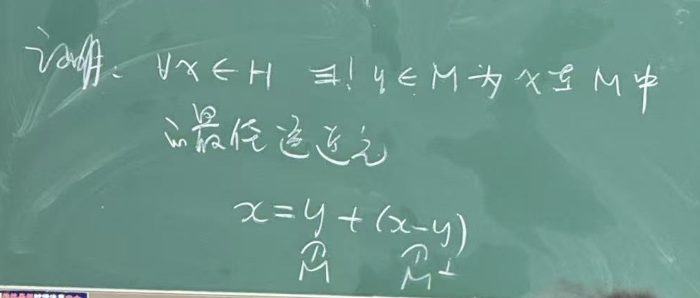 证明: ∀x∈H ∃! y∈M 为 x 在 M 中
的最佳逼近元
x=y+(x-y)
M M⊥